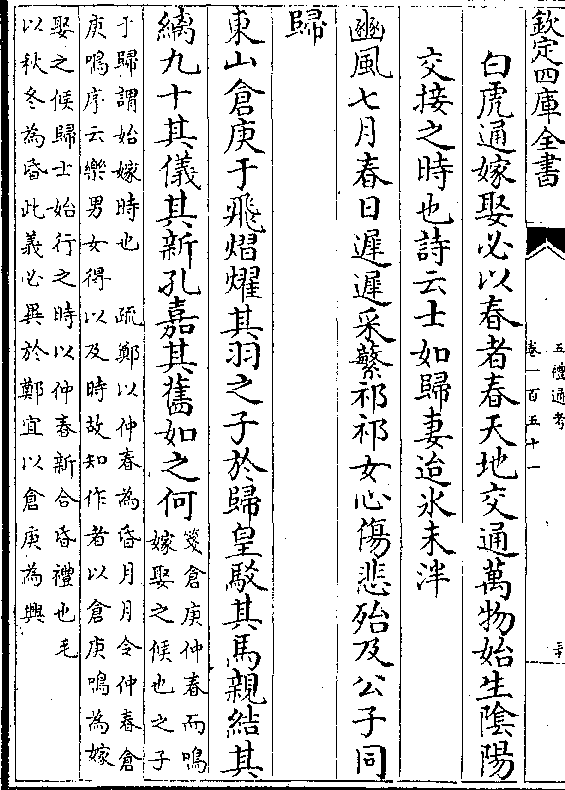 欽定四庫全書
五禮通考
卷一百五十一
三十
白虎通嫁娶必以春者春天地交通萬物始生陰陽
交接之時也詩云士如歸妻迨冰未泮
豳風七月春日遲遲采蘩祁祁女心傷悲殆及公子同
歸
東山倉庚于飛熠燿其羽之子於歸皇駁其馬親結其
縭九十其儀其新孔嘉其舊如之何
箋倉庚仲春而鳴
嫁娶之候也之子
于歸謂始嫁時也 疏鄭以仲春為昏月月令仲春倉
庚鳴序云樂男女得以及時故知作者以倉庚鳴為嫁
娶之候歸士始行之時以仲春新合昏禮也毛
以秋冬為昏此義必異於鄭宜以倉庚為興